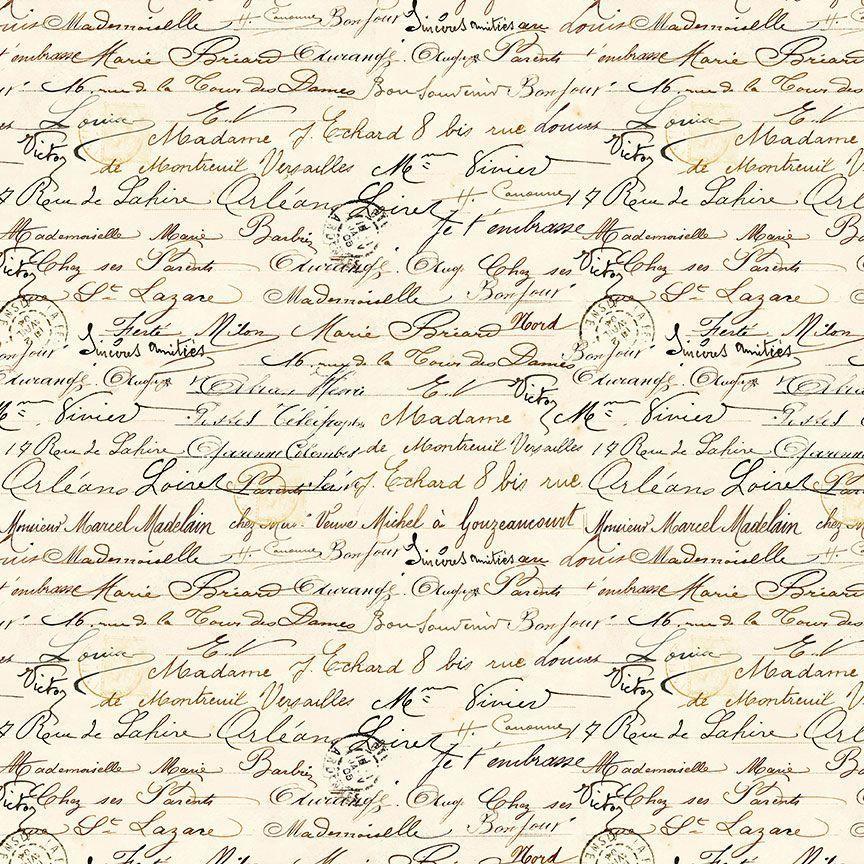 Mademoiselle H. Canonne Bonjour Sincères amitiés rue Louis Mademoiselle H. Canonne Bonjour
t'embrasse Marie Briard Parents t'embrasse Marie Briard
16. rue de la Tour des Dames Bon Souvenir Bonjour 16. rue de la Tour des
Louise E.V Louise E.V
Victor Madame J. Echard 8 bis rue Louise Victor Madame
de Montreuil Versailles Mme Vivier de Montreuil V
17 Rue de Lahire Orléans Loiret H. Canonne 17 Rue de Lahire Orl
Je t'embrasse
Mademoiselle Marie Barbier Mademoiselle Marie Barb
Victor Chez ses Parents Chez ses Victor Chez ses Parents
rue St Lazare Mademoiselle Bonjour rue St Lazare
Ferté Milon Marie Briard Nord Ferté Milon
Bonjour Sincères amitiés 16. rue de la Tour des Dames Bonjour Sincères amitiés
E.V Victor
Mme Vivier Postes Télégraphes Madame Mme Vivier Postes
17 Rue de Lahire Garenne Colombes de Montreuil Versailles 17 Rue de Lahire Garenne
Orléans Loiret Parents J. Echard 8 bis rue Orléans Loiret Pa
Monsieur Marcel Madelain chez Veuve Michel à Gouzeaucourt Monsieur Marcel Madelain chez
Mademoiselle H. Canonne Bonjour Sincères amitiés rue Louis Mademoiselle H. Canonne Bonjour
t'embrasse Marie Briard Parents t'embrasse Marie Briard
16. rue de la Tour des Dames Bon Souvenir Bonjour 16. rue de la Tour des
Louise E.V Louise E.V
Victor Madame J. Echard 8 bis rue Louise Victor Madame
de Montreuil Versailles Mme Vivier de Montreuil V
17 Rue de Lahire Orléans Loiret H. Canonne 17 Rue de Lahire Orl
Je t'embrasse
Mademoiselle Marie Barbier Mademoiselle Marie Barb
Victor Chez ses Parents Chez ses Victor Chez ses Parents
rue St Lazare Mademoiselle Bonjour rue St Lazare
Ferté Milon Marie Briard Nord Ferté Milon